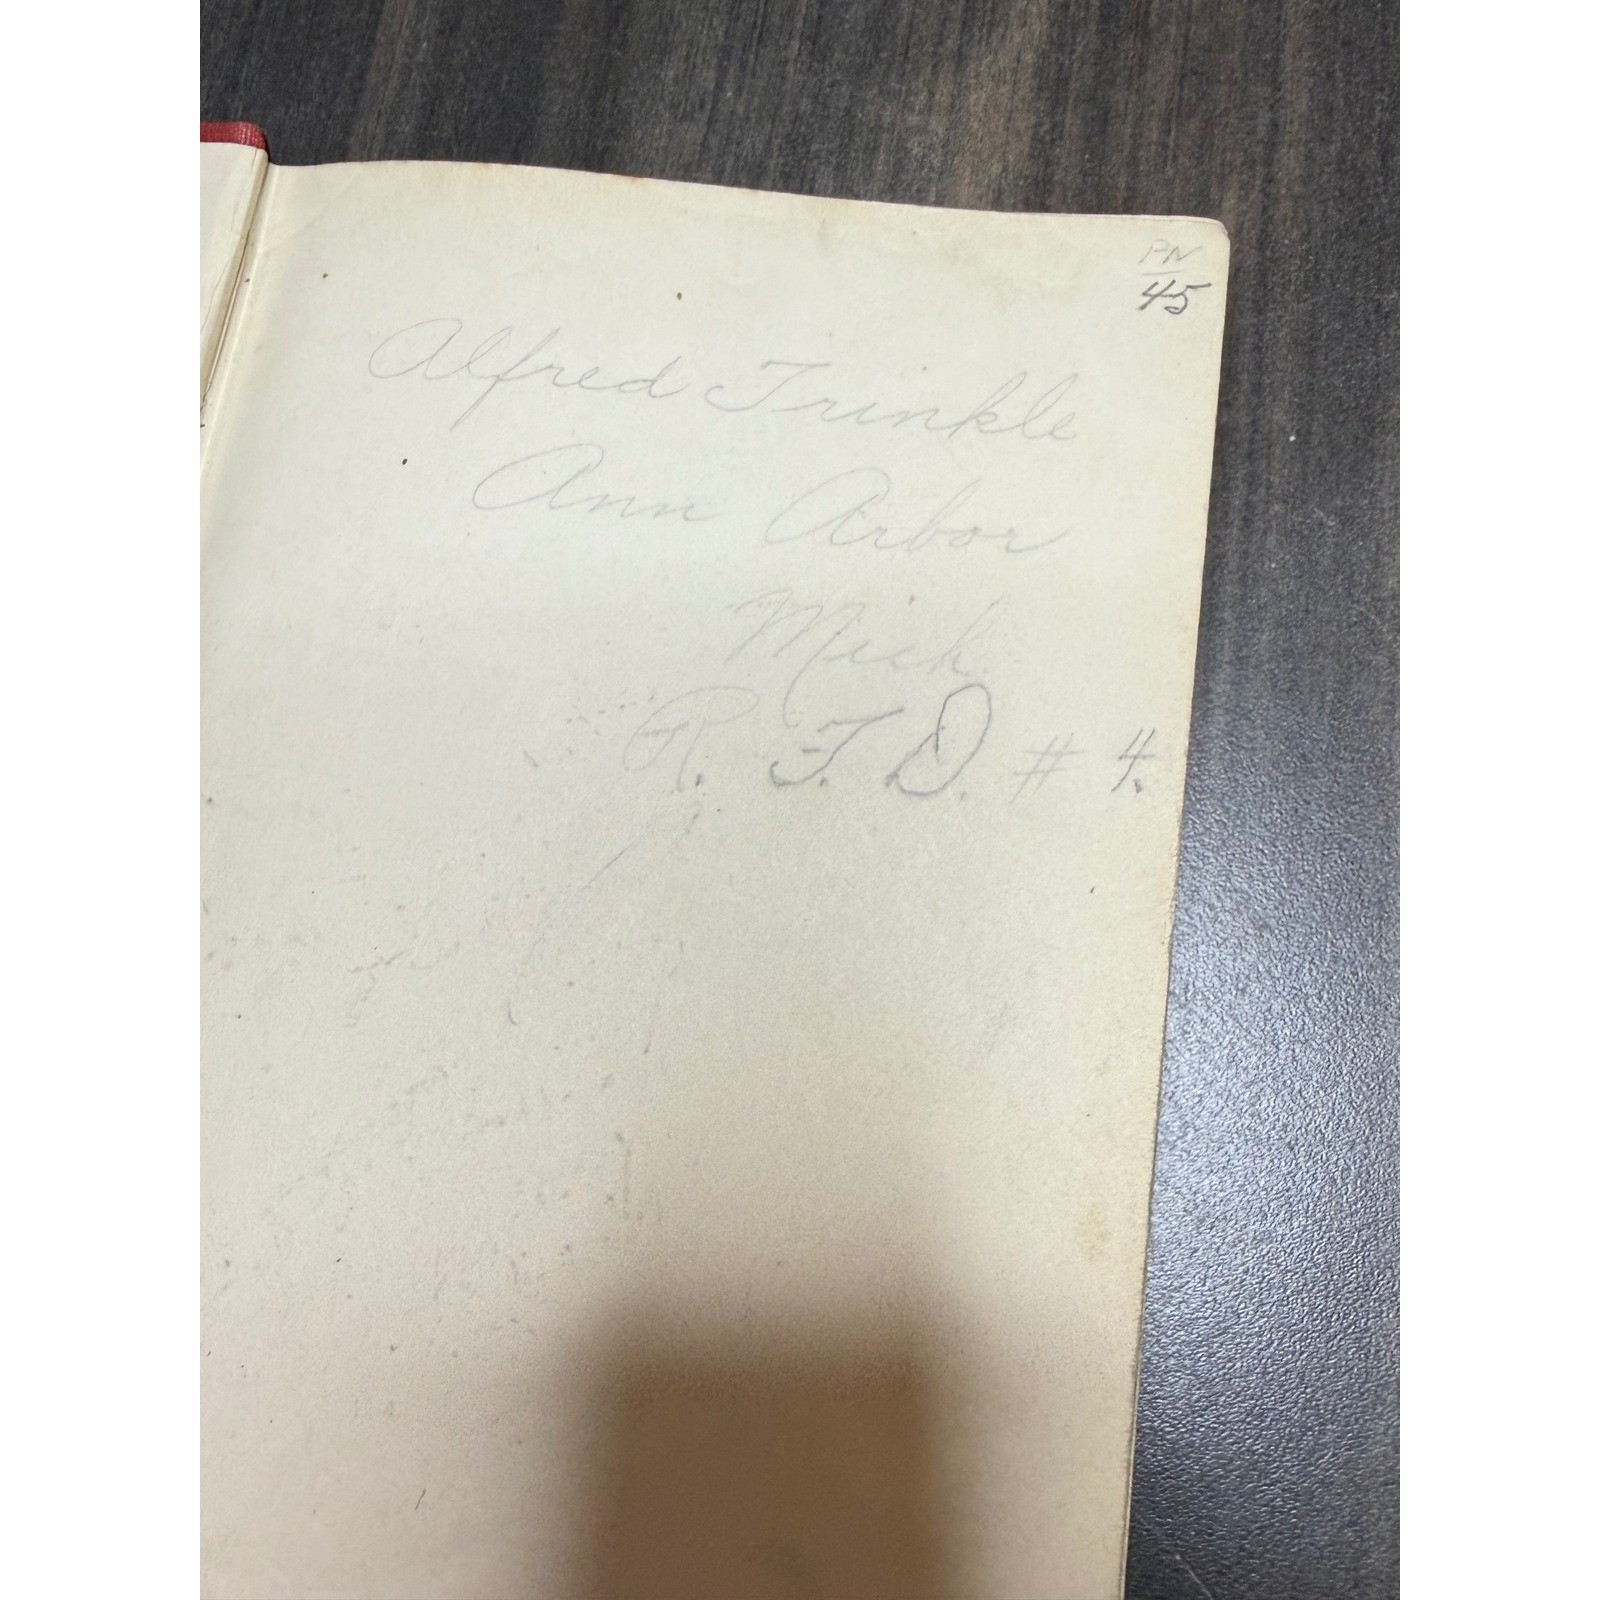 PN
45
Alfred Trinkle
Ann Arbor
Mich
R. F. D. # 4.